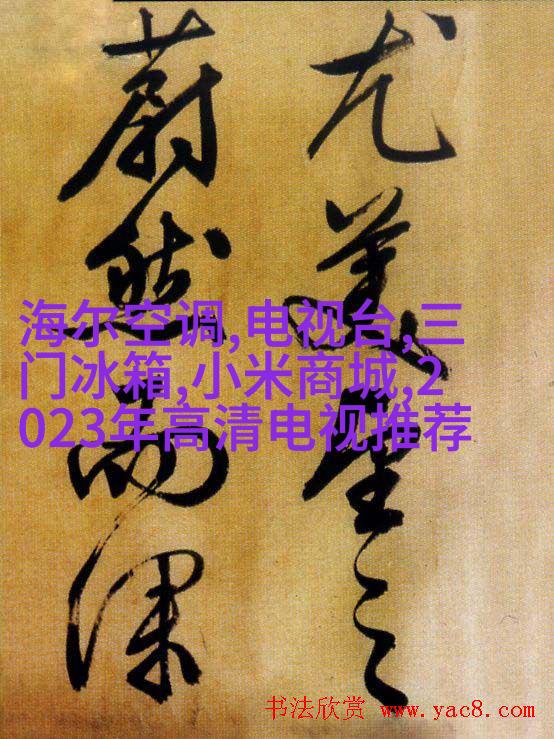 尤美望之
蔚然而深
海尔空调,电视台,三
门冰箱,小米商城,2
023年高清电视推荐
书法欣赏 www.yac8.com